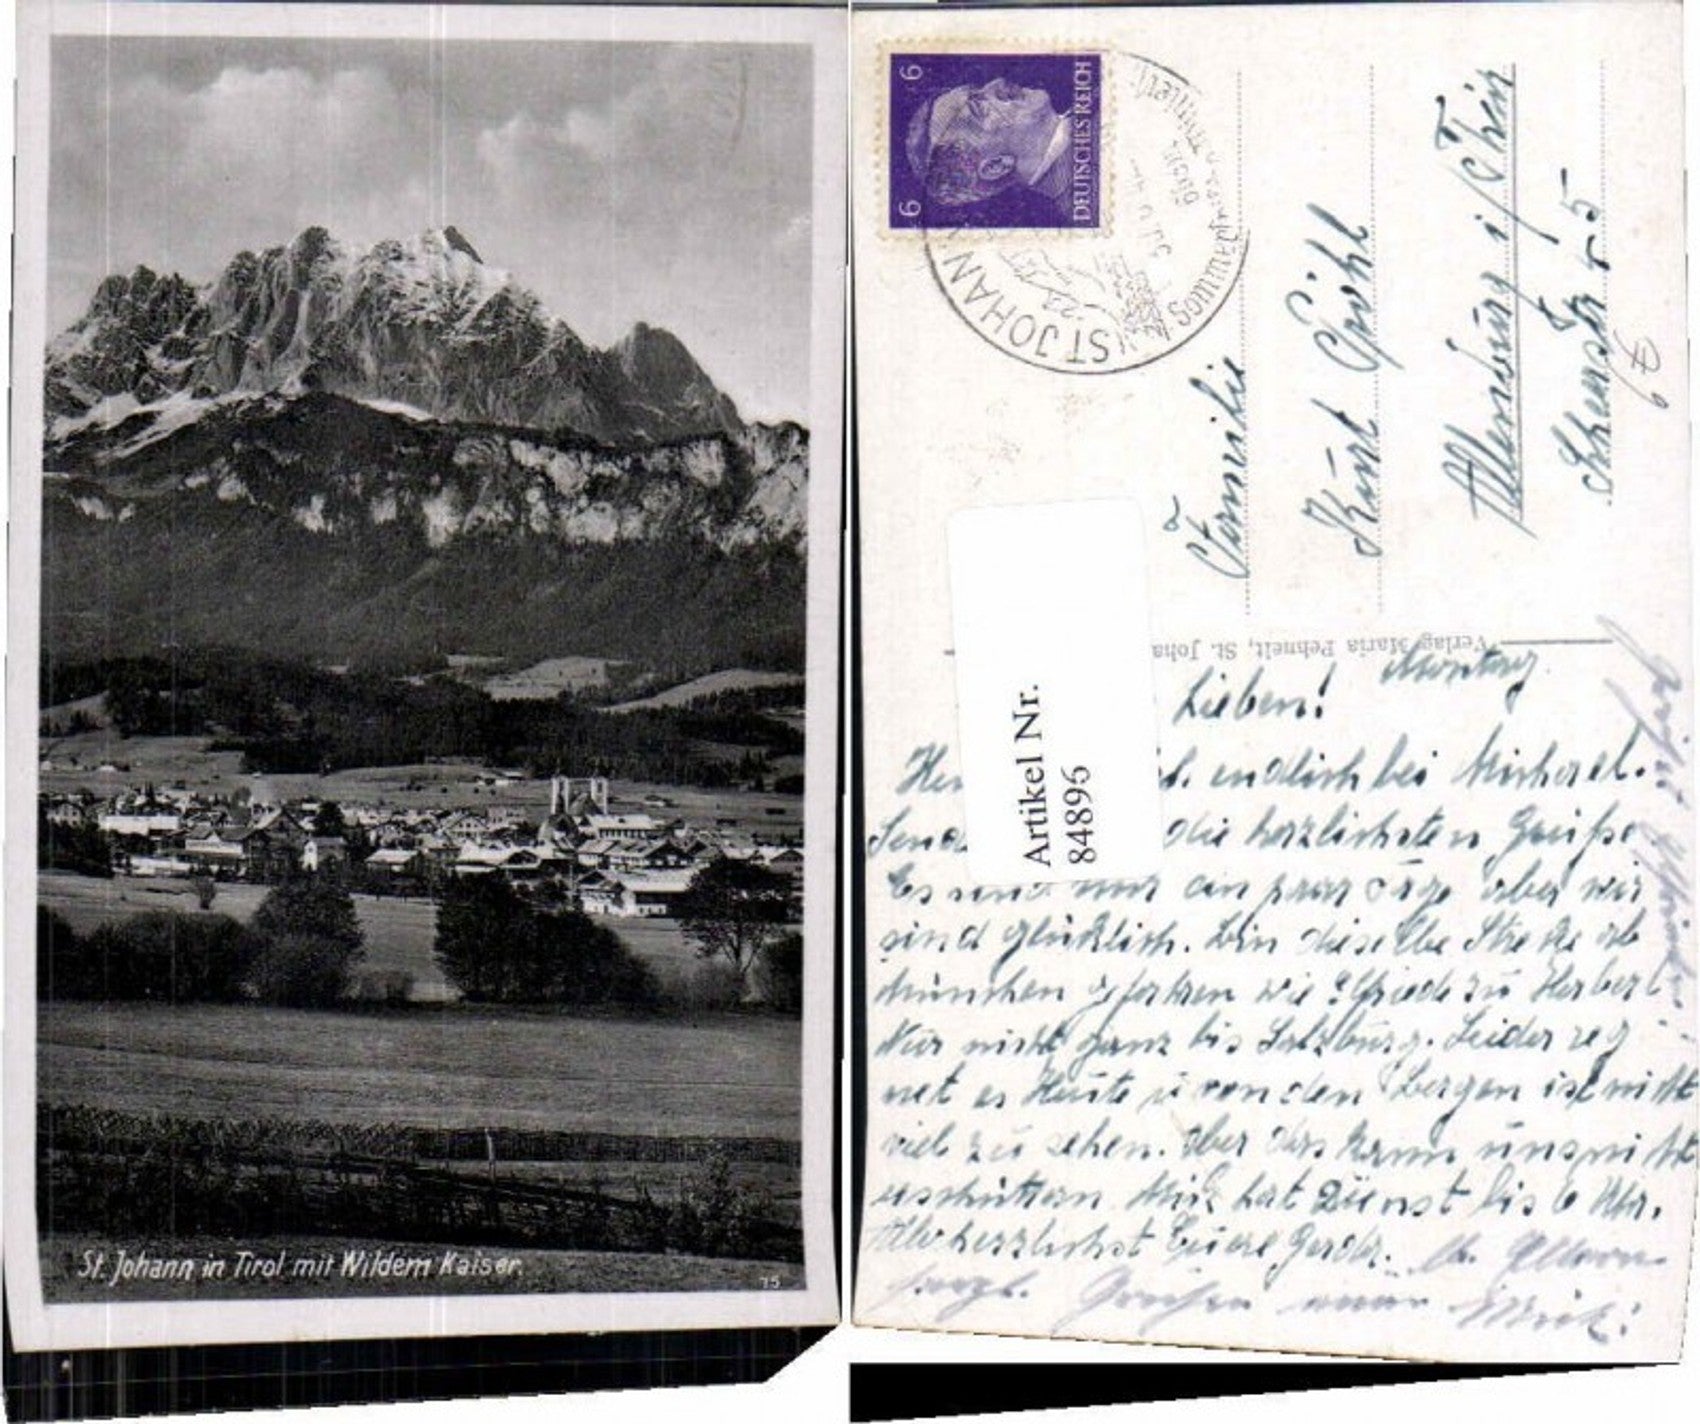 St. Johann in Tirol mit Wildem Kaiser.
75
6 6
DEUTSCHES REICH
ST JOHANN
Sommerfrische
Familie
Kurt
Altenburg i/Thür
5
Verlag Maria Pehnelt, St. Joha
Artikel Nr.
84896
Montag
Lieben!
endlich bei Michael.
die herzlichsten Grüße
Es sind nur ein paar Tage aber wir
sind glücklich. Bin dieselbe Strecke ab
München gefahren wie Elfriede zu Herbert
Nur nicht ganz bis Salzburg. Leider reg
net es Heute u von den Bergen ist nicht
viel zu sehen. Aber das kann uns nicht
erschüttern. hat Dienst bis 6 Uhr.
Allerherzlichst Euere Gerda.
herzl. Grüßen